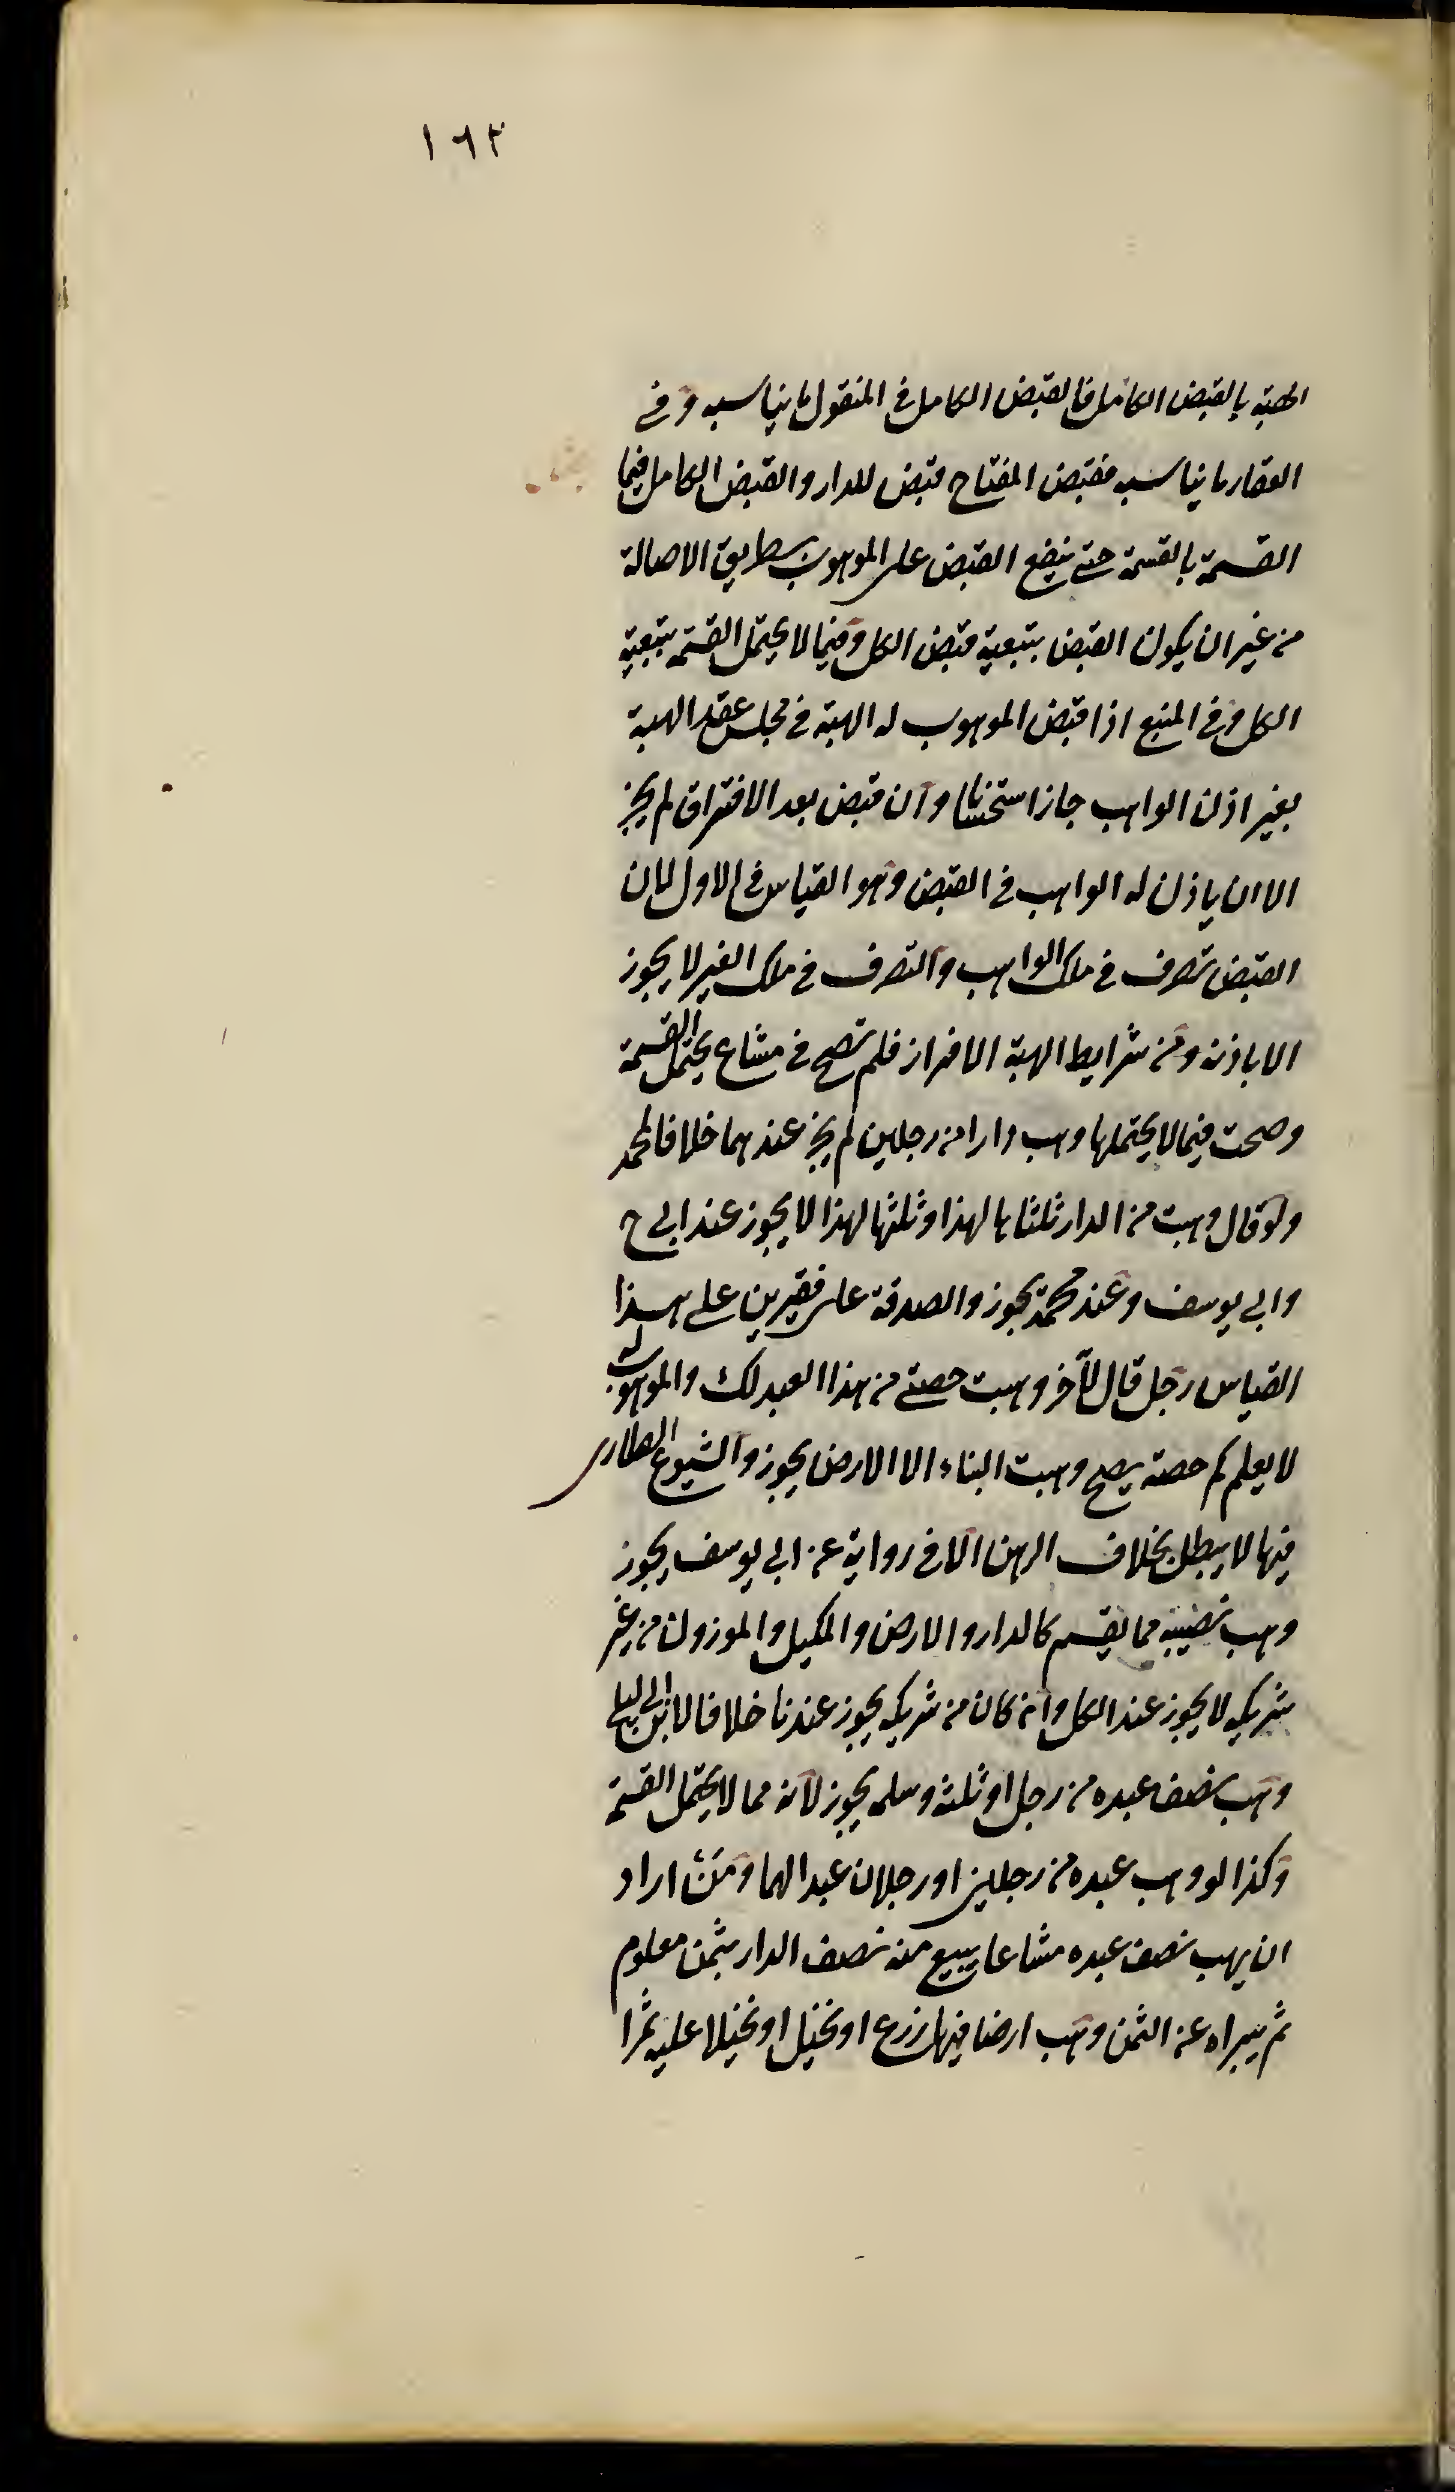 ١٦٢
الهبة بالقبض الكامل فالقبض الكامل في المنقول ما يناسبه وفي
العقار ما يناسبه فقبض المفتاح قبض للدار والقبض الكامل فيما
القسمة بالقسمة حتى يقع القبض على الموهوب بطريق الاصالة
من غير ان يكون القبض بتبعية قبض الكل وفيما لا يحتمل القسمة بتبعية
الكل وفي المنبع اذا قبض الموهوب له الهبة في مجلس عقد الهبة
بغير اذن الواهب جاز استحسانا وان قبض بعد الافتراق لم يجز
الا ان ياذن له الواهب في القبض وهو القياس في الاول لان
القبض تصرف في ملك الواهب والتصرف في ملك الغير لا يجوز
الا باذنه ومن شرايط الهبة الافراز فلم تصح في مشاع يحتمل القسمة
وصحت فيما لا يحتملها وهب دارا من رجلين لم يجز عندهما خلافا لمحمد
ولو قال وهبت من الدار ثلثاها لهذا وثلثها لهذا لا يجوز عند ابي ح
وابي يوسف وعند محمد يجوز والصدقة على فقيرين على هذا
القياس رجل قال لآخر وهبت حصتي من هذا العبد لك والموهوب له
لا يعلم كم حصته يصح وهبت البناء الا الارض يجوز والشيوع الطاري
فيها لا يبطل بخلاف الرهن الا في رواية عن ابي يوسف يجوز
وهب نصيبه مما يقسم كالدار والارض والمكيل والموزون من غير
شريكه لا يجوز عند الكل وان كان من شريكه يجوز عندنا خلافا لابن ابي ليلى
وهب نصف عبده من رجل او ثلثه وسلم يجوز لانه مما لا يحتمل القسمة
وكذا لو وهب عبده من رجلين او رجلان عبدا لهما ومن اراد
ان يهب نصف عبده مشاعا يبيع منه نصف الدار بثمن معلوم
ثم يبراه عن الثمن وهب ارضا فيها زرع او نخيل او نخيلا عليه ثمرا